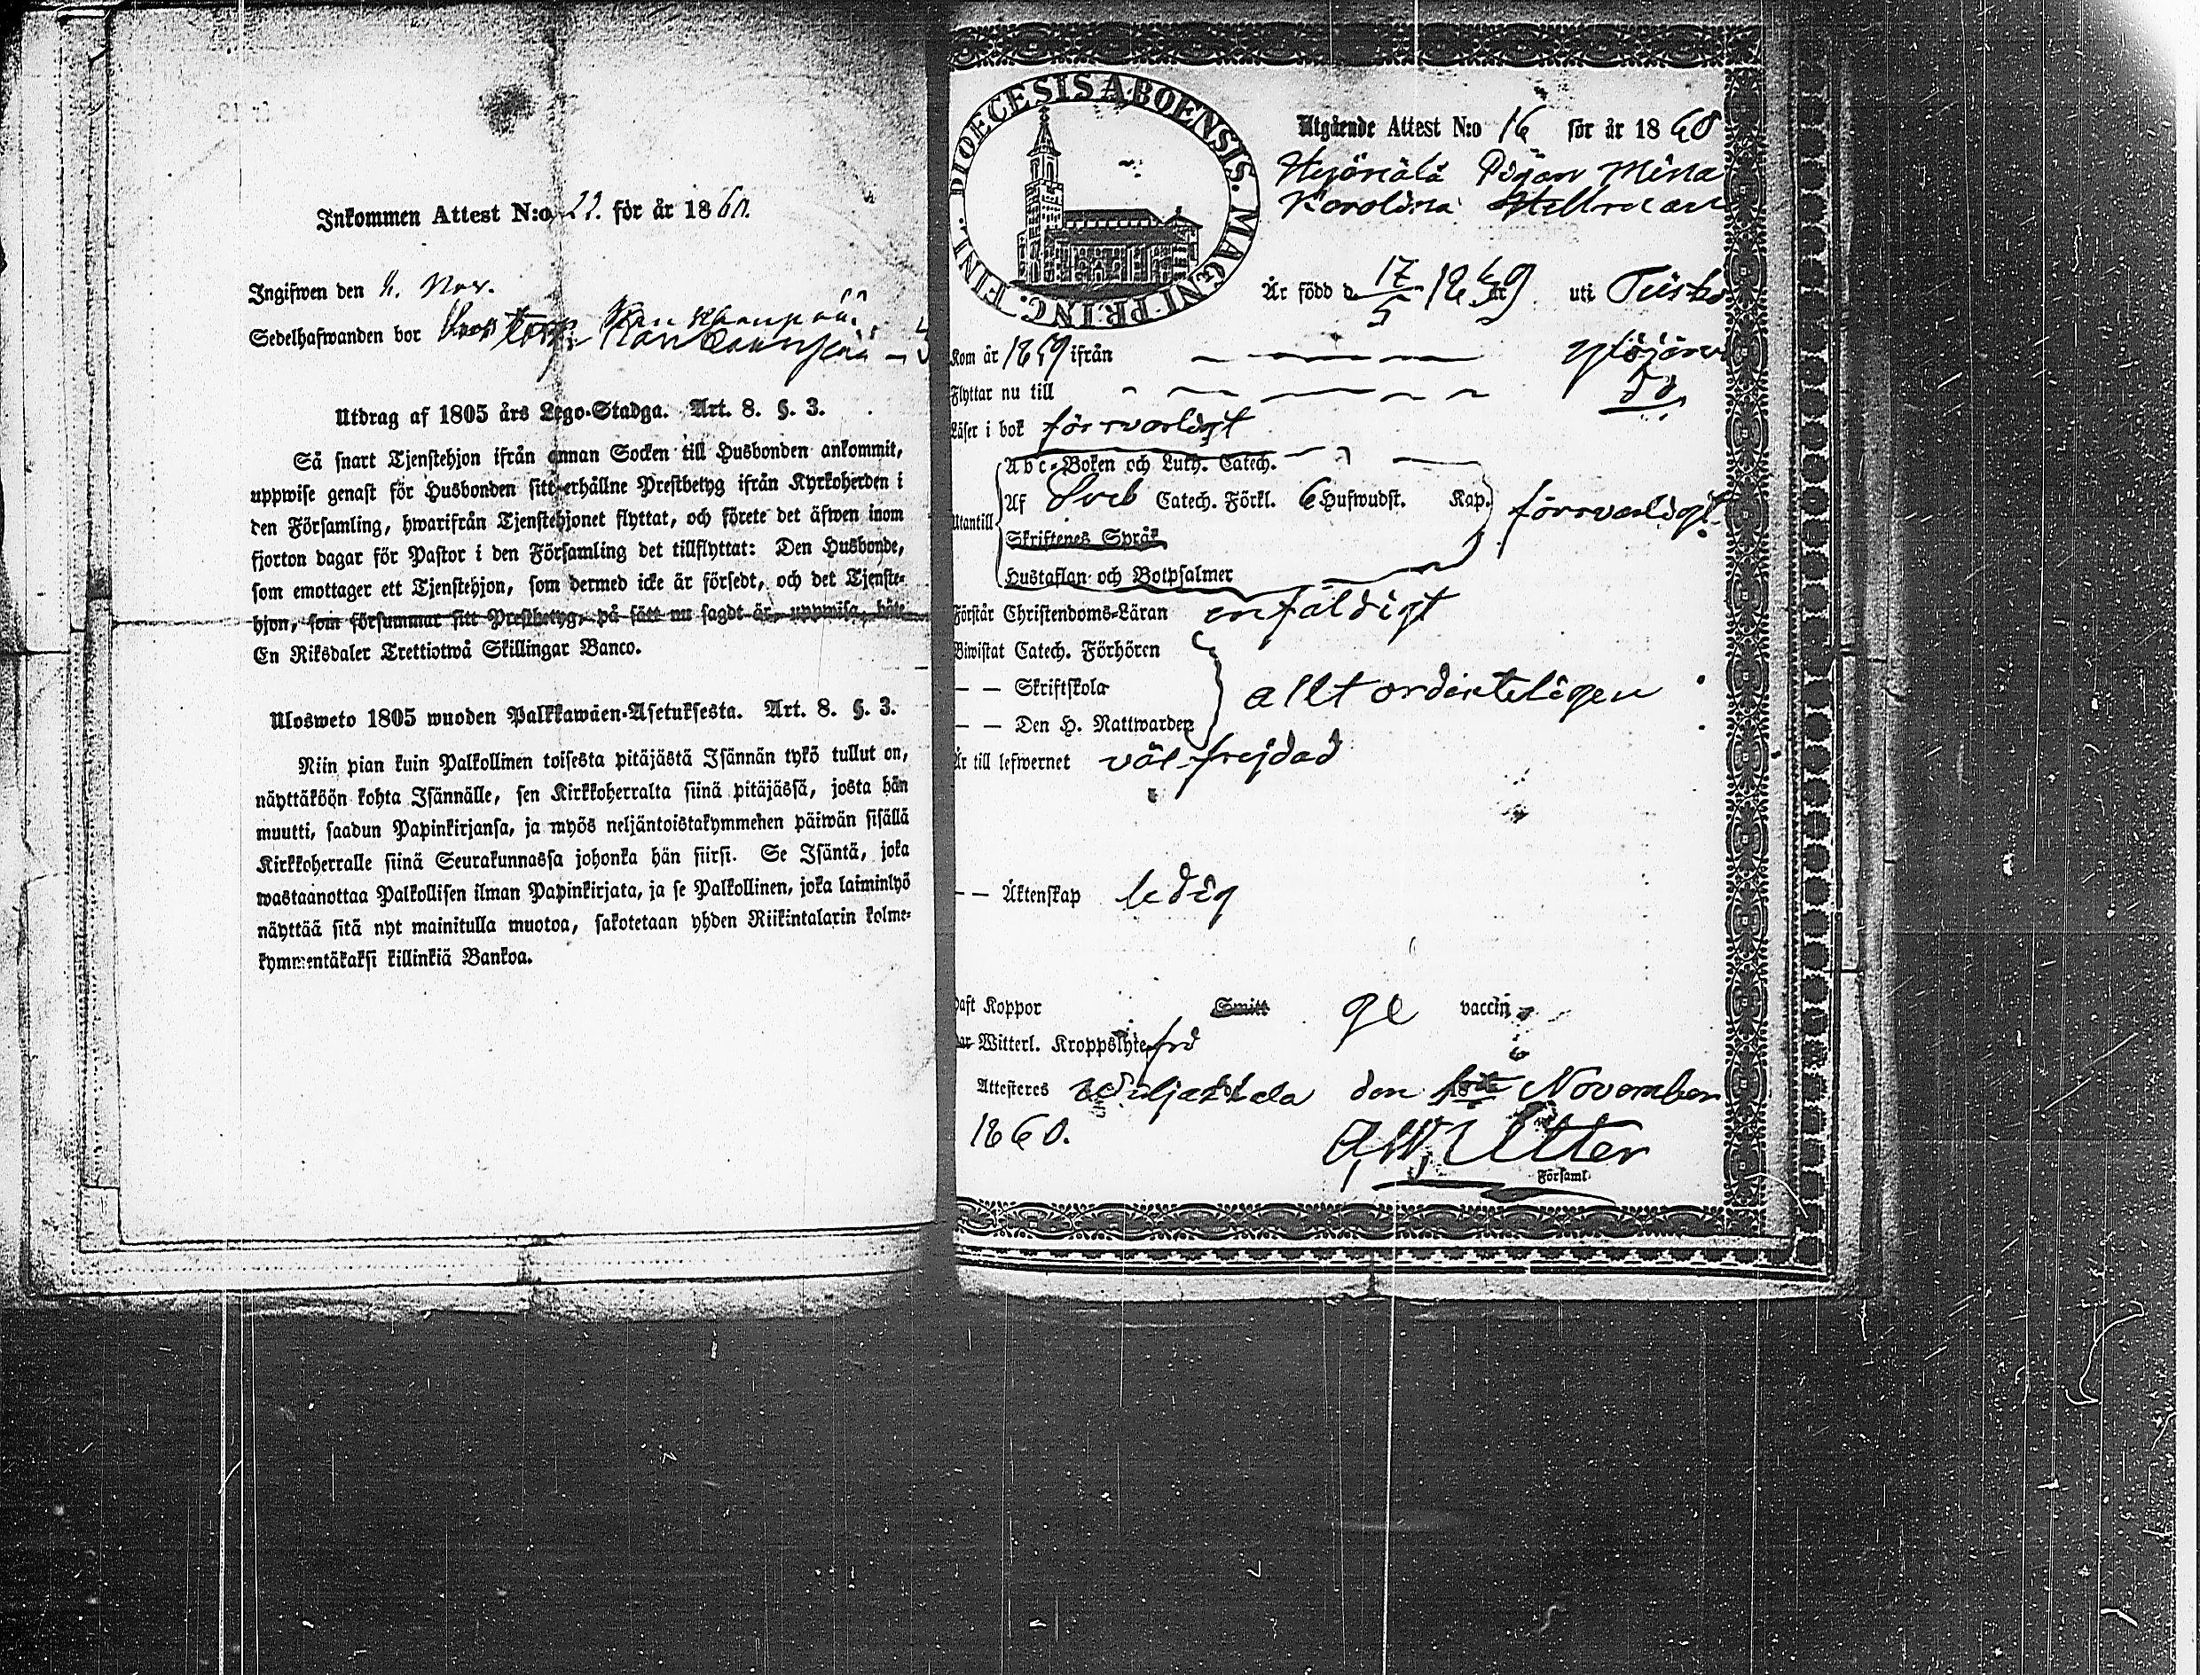 Inkommen Attest N:o 22. för år 1860.
Ingifwen den 11. Nov.
Sedelhafwanden bor
Utdrag af 1805 års Lego-Stadga. Art. 8. §. 3.
Så snart Tjenstehjon ifrån annan Socken till Husbonden ankommit,
uppwise genast för Husbonden sitt erhållne Prestbetyg ifrån Kyrkoherden i
den Församling, hwarifrån Tjenstehjonet flyttat, och förete det äfwen inom
fjorton dagar för Pastor i den Församling det tillflyttat: Den Husbonde,
som emottager ett Tjenstehjon, som dermed icke är försedt, och det Tjenste-
hjon, som försummar sitt Prestbetyg, på sätt nu sagdt är, uppwisa, böte
En Riksdaler Trettiotwå Skillingar Banco.
Ulosweto 1805 wuoden Palkkawäen-Asetuksesta. Art. 8. §. 3.
Niin pian kuin Palkollinen toisesta pitäjästä Isännän tykö tullut on,
näyttäköön kohta Isännälle, sen Kirkkoherralta siinä pitäjässä, josta hän
muutti, saadun Papinkirjansa, ja myös neljäntoistakymmenen päiwän sisällä
Kirkkoherralle siinä Seurakunnassa johonka hän siirsi. Se Isäntä, joka
wastaanottaa Palkollisen ilman Papinkirjata, ja se Palkollinen, joka laiminlyö
näyttää sitä nyt mainitulla muotoa, sakotetaan yhden Riikintalarin kolme-
kymmentäkaksi killinkiä Bankoa.
DIOECESIS ABOENSIS. MAGNI PRINC. FINL.
Utgående Attest N:o 16 för år 1860
Pigan Mina
Karolina Hellman
Är född d. 17/5 uti
Kom år 1859 ifrån Ylöjärvi
Flyttar nu till do.
Läser i bok försvarligt
Abc-Boken och Luth. Catech.
Utantill Af Sveb Catech. Förkl. 6 Hufwudst. Kap. försvarligt
Skriftenes Språk
Hustaflan och Botpsalmer
Förstår Christendoms-Läran enfäldigt
Biwistat Catech. Förhören
— — Skriftskola allt ordenteligen
— — Den H. Nattwarden
Är till lefwernet väl frejdad
— — Äktenskap ledig
Haft Koppor Smitt ge vaccin
Har Witterl. Kroppslyte
Attesteres den November
1860.
A. W. Utter
Församl.